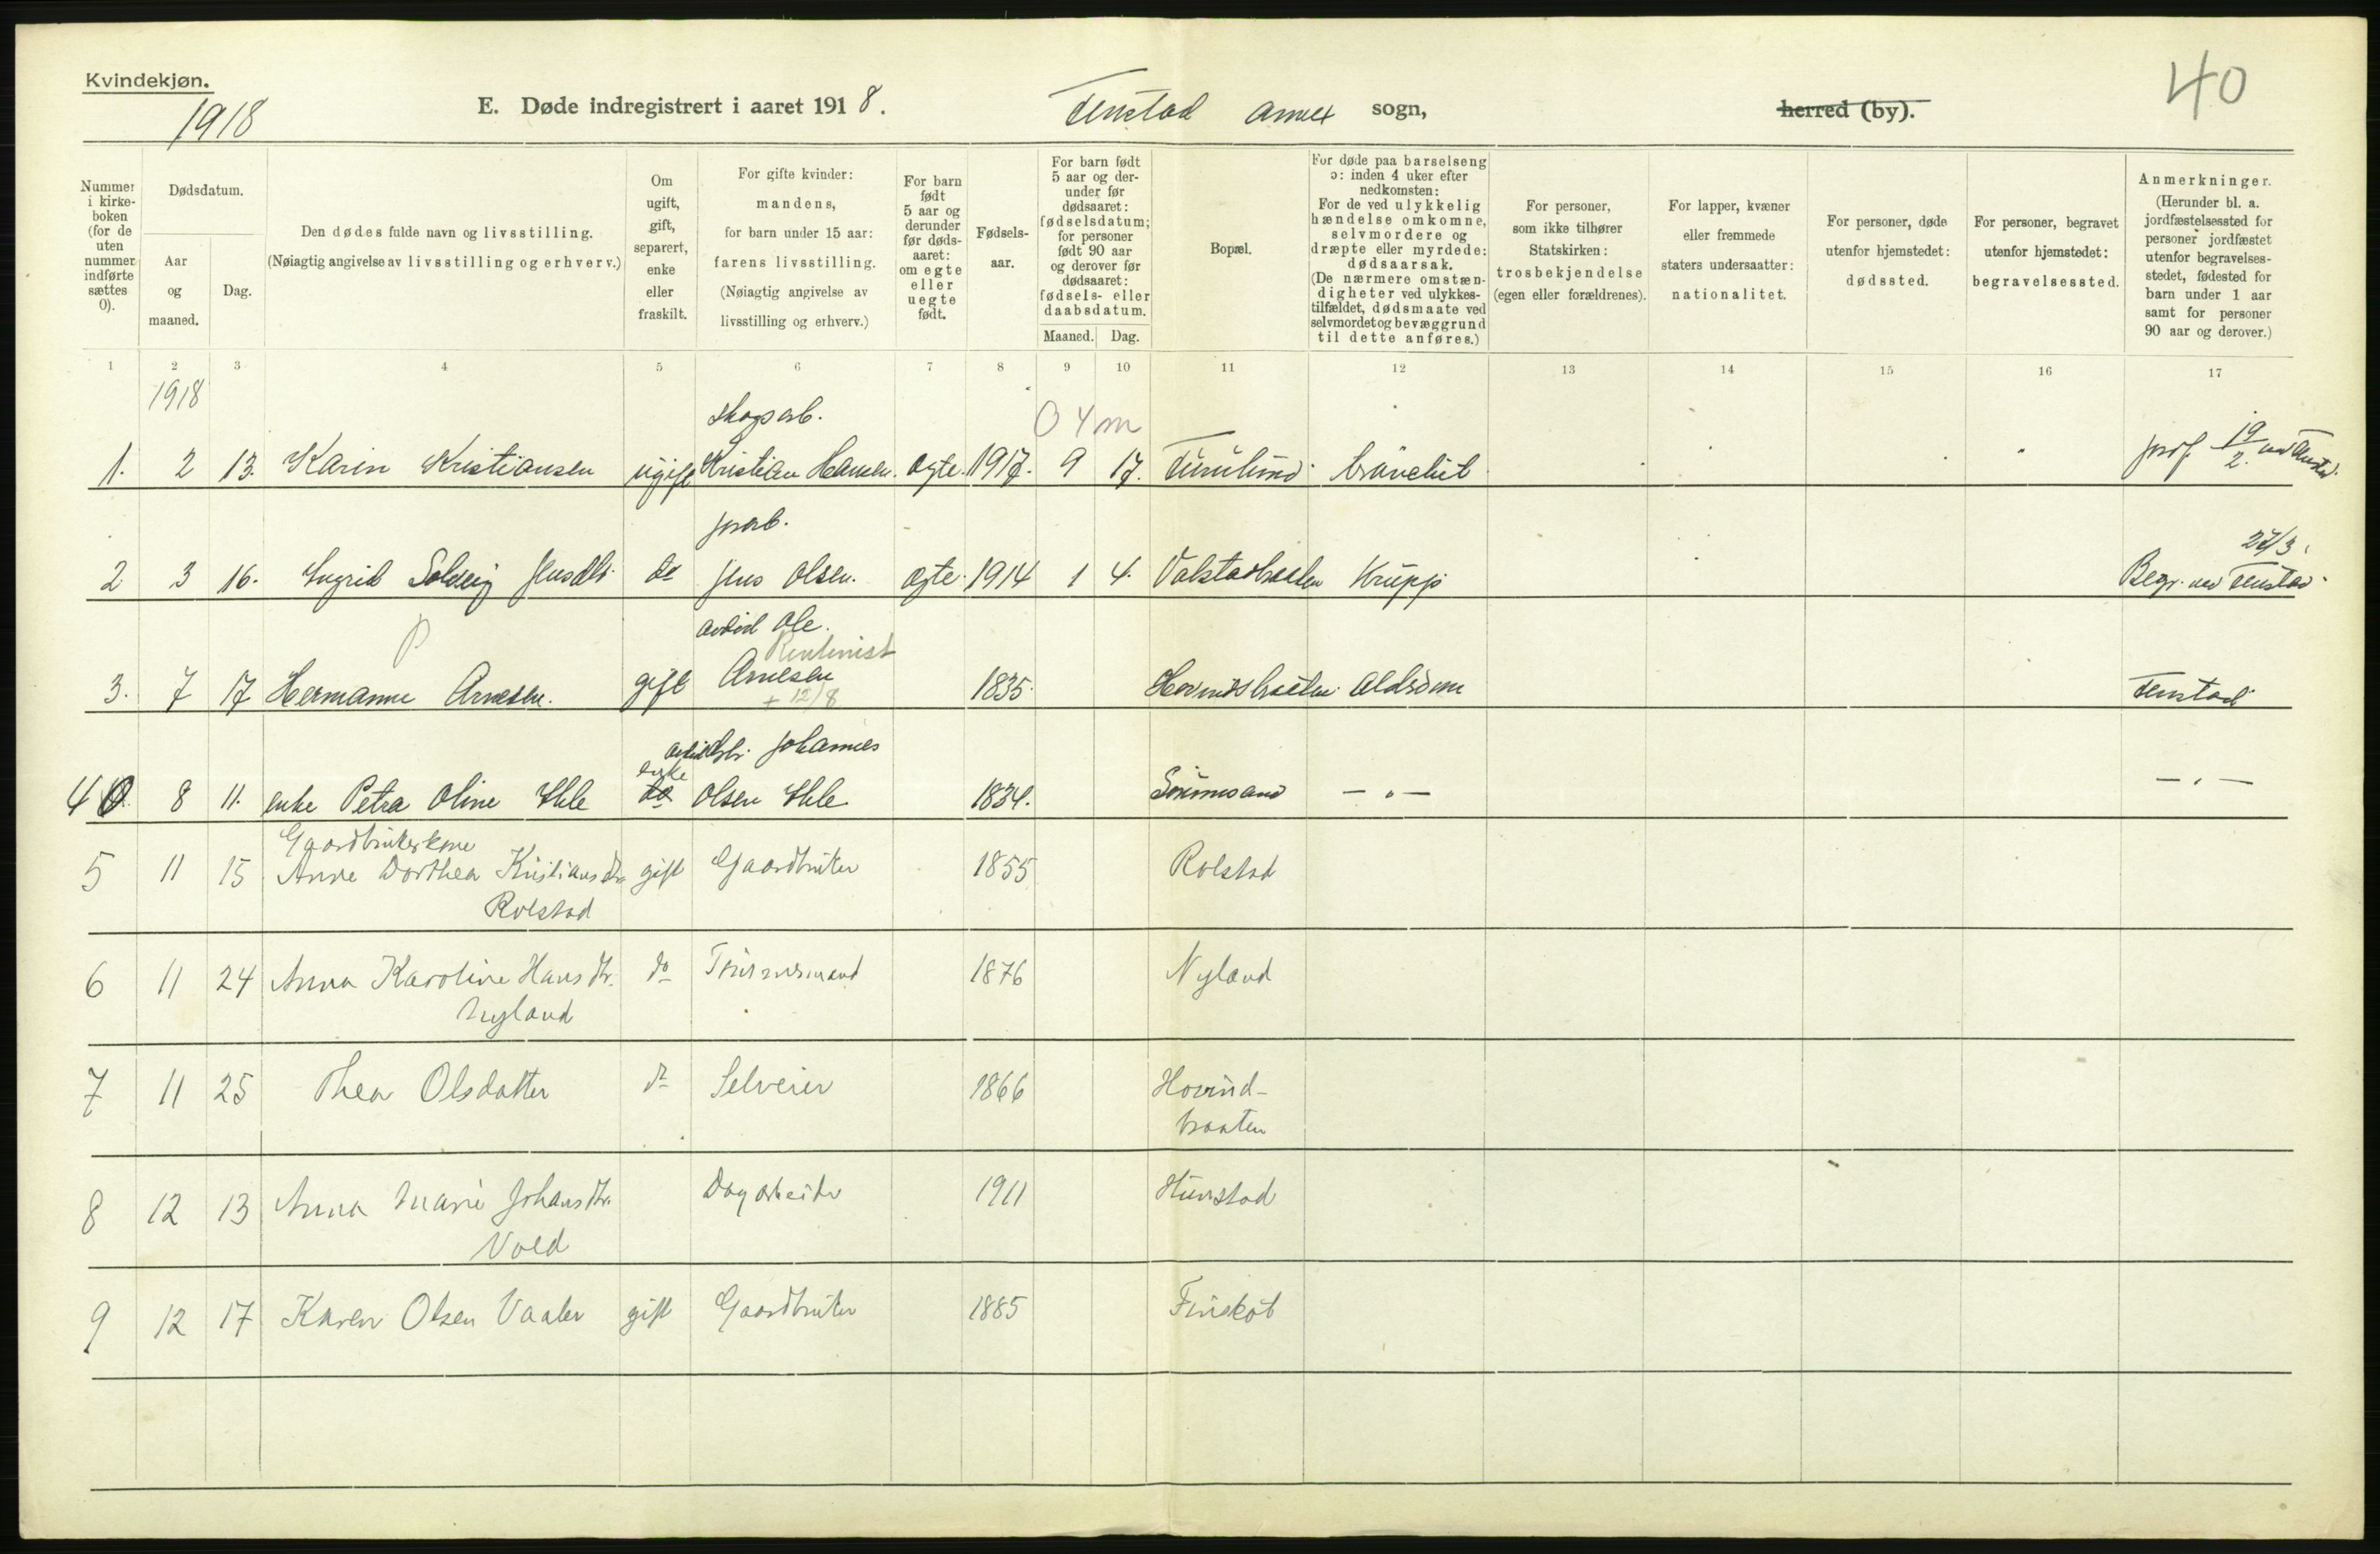 Kvindekjøn.
1918
E. Døde indregistrert i aaret 1918.
Fenstad annex sogn,
herred (by).
40
Nummer i kirkeboken (for de uten nummer indførte sættes 0).
Dødsdatum.
Aar og maaned.
Dag.
Den dødes fulde navn og livsstilling.
(Nøiagtig angivelse av livsstilling og erhverv.)
Om ugift, gift, separert, enke eller fraskilt.
For gifte kvinder: mandens, for barn under 15 aar: farens livsstilling.
(Nøiagtig angivelse av livsstilling og erhverv.)
For barn født 5 aar og derunder før dødsaaret: om egte eller uegte født.
Fødselsaar.
For barn født 5 aar og derunder før dødsaaret: fødselsdatum; for personer født 90 aar og derover før dødsaaret: fødsels- eller daabsdatum.
Maaned. Dag.
Bopæl.
For døde paa barselseng ɔ: inden 4 uker efter nedkomsten:
For de ved ulykkelig hændelse omkomne, selvmordere og dræpte eller myrdede: dødsaarsak.
(De nærmere omstændigheter ved ulykkestilfældet, dødsmaate ved selvmordet og bevæggrund til dette anføres.)
For personer, som ikke tilhører Statskirken: trosbekjendelse (egen eller forældrenes).
For lapper, kvæner eller fremmede staters undersaatter: nationalitet.
For personer, døde utenfor hjemstedet: dødssted.
For personer, begravet utenfor hjemstedet: begravelsessted.
Anmerkninger.
(Herunder bl. a. jordfæstelsessted for personer jordfæstet utenfor begravelsesstedet, fødested for barn under 1 aar samt for personer 90 aar og derover.)
1 2 3 4 5 6 7 8 9 10 11 12 13 14 15 16 17
1918
skogsarb. 0 4 m
1. 2 13. Karin Kristiansen ugift Kristian Hansen. egte. 1917. 9 17. Furulund
jordf. 19/2 ved Fenstad.
jorarb.
2 3 16. Ingrid Solveig Jensdtr. do Jens Olsen. egte. 1914 1 4.
27/3.
Begr. ved Fenstad.
Ole.
Arnesen
+ 12/8
3. 7 17 Hermanne Arnesen. gift 1835. Hovindsbraaten. Alderdom Fenstad
Johannes
enke
40. 8 11. enke Petra Oline Ihle do Olsen Ihle 1834. — " — — " —
Gaardbrukerkone
5 11 15 Anne Dorthea Kristiansdtr. gift Gaardbruker 1855 Rolstad
Rolstad
6 11 24 Anna Karoline Hansdtr. do Tømmermand 1876 Nyland
Nyland
7 11 25 Thea Olsdatter do Selveier 1866 Hovind-
braaten
8 12 13 Anna Marie Johansdtr. Dagarbeider 1911 Hunstad
Vold
9 12 17 Karen Olsen Vaaler gift Gaardbruker 1885